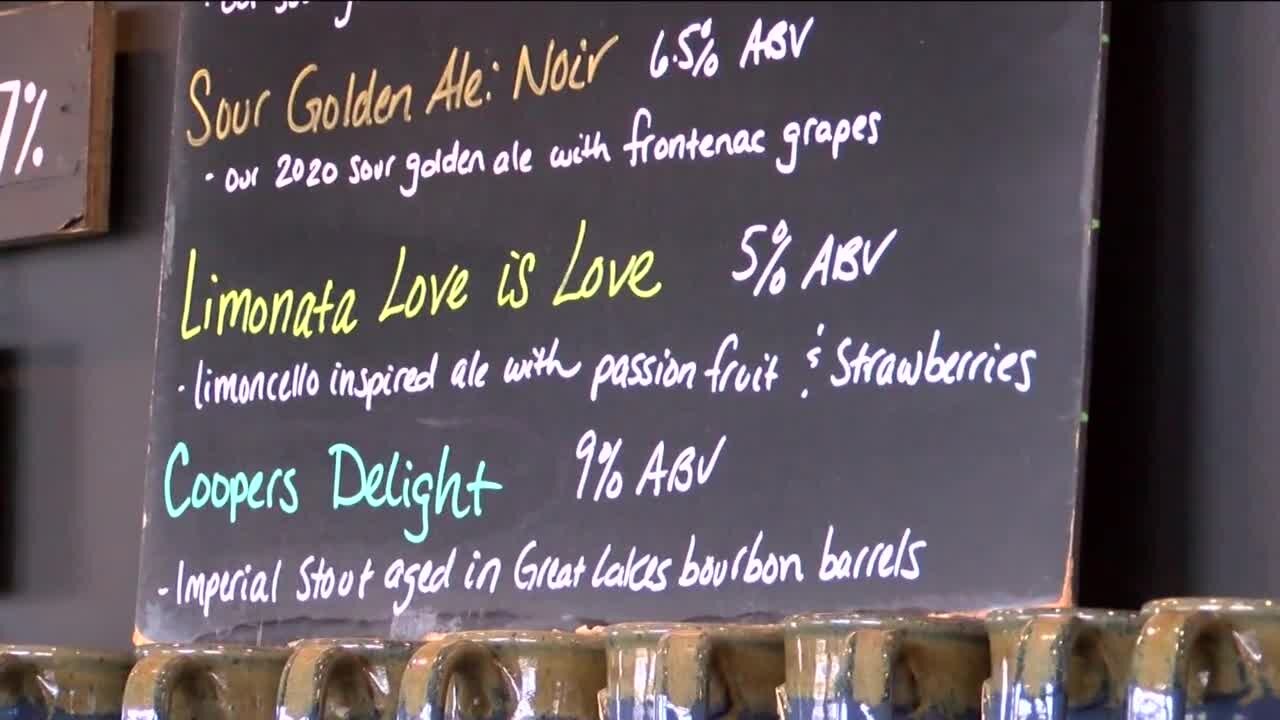 7%
Sour Golden Ale: Noir 6.5% ABV
· our 2020 sour golden ale with frontenac grapes
Limonata Love is Love 5% ABV
· limoncello inspired ale with passion fruit & Strawberries
Coopers Delight 9% ABV
- Imperial Stout aged in Great Lakes bourbon barrels